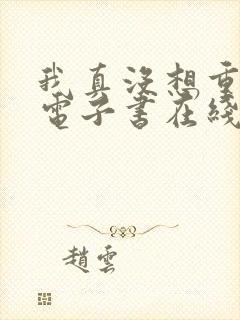 我真沒想重
電子書在綫
趙雲